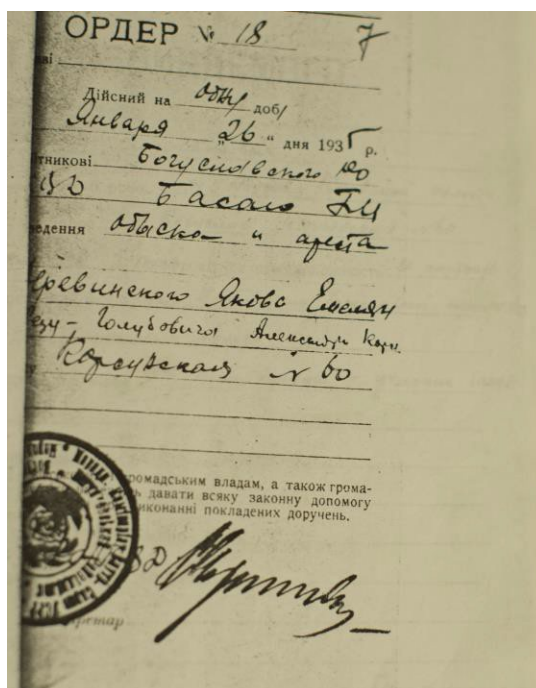 ОРДЕР № 18 7
ві
Дійсний на одну добу
Января „26“ дня 1935 р.
тникові Богуславского РО
Басаго
ведення обыска и ареста
еревинского Якова Емельян
Голубовича Александр Корн.
Корсунская № 60
ромадським владам, а також грома-
ь давати всяку законну допомогу
иконанні покладених доручень.
ВД
ретар